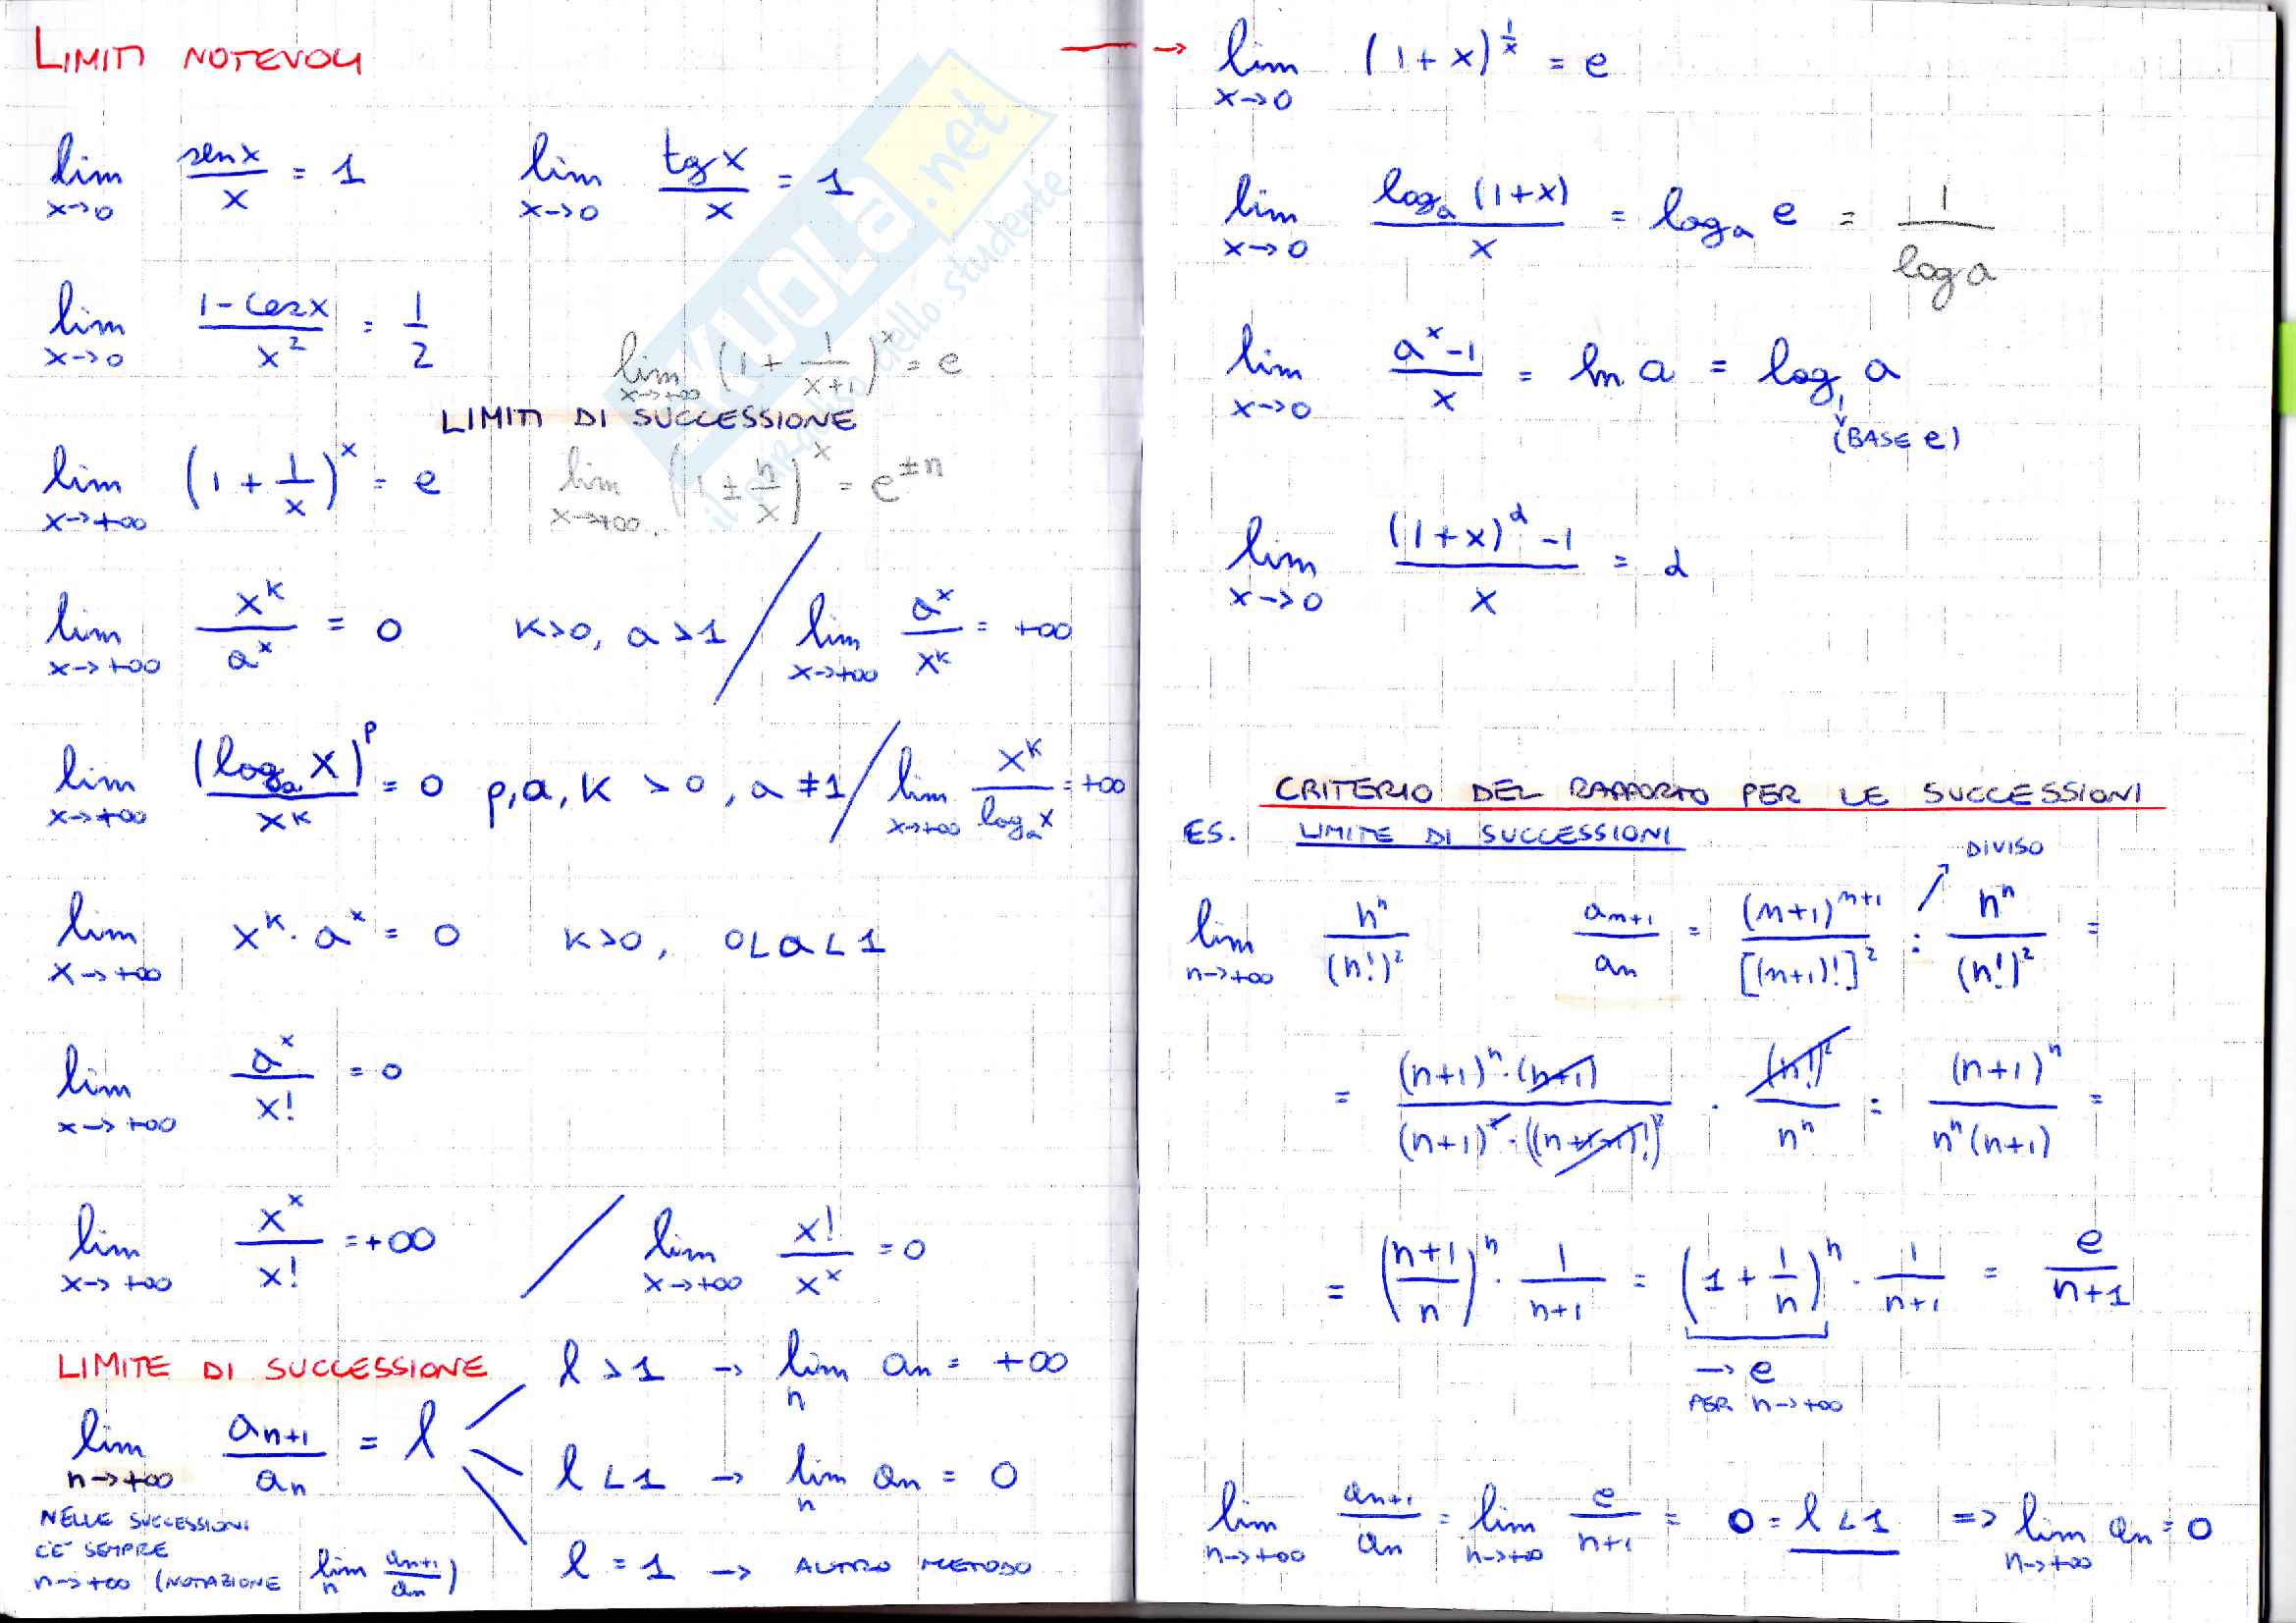 LIMITI NOTEVOLI
lim x→0 senx/x = 1    lim x→0 tgx/x = 1
lim x→0 (1-cosx)/x² = 1/2    lim x→+∞ (1 + 1/(x+1))^x = e
LIMITI DI SUCCESSIONE
lim x→+∞ (1 + 1/x)^x = e    lim x→+∞ (1 ± n/x)^x = e^±n
lim x→+∞ x^k/a^x = 0    k>0, a>1 / lim x→+∞ a^x/x^k = +∞
lim x→+∞ (log_a x)^p/x^k = 0    p,a,k > 0, a ≠ 1 / lim x→+∞ x^k/log_a x = +∞
lim x→+∞ x^k · a^x = 0    k>0, 0<a<1
lim x→+∞ a^x/x! = 0
lim x→+∞ x^x/x! = +∞ / lim x→+∞ x!/x^x = 0
LIMITE DI SUCCESSIONE
lim n→+∞ a_n+1/a_n = l
l > 1 → lim n a_n = +∞
l < 1 → lim n a_n = 0
l = 1 → ALTRO METODO
NELLE SUCCESSIONI
C'E' SEMPRE
n→+∞ (NOTAZIONE lim n a_n+1/a_n)
→ lim x→0 (1+x)^1/x = e
lim x→0 log_a (1+x)/x = log_a e = 1/log a
lim x→0 (a^x-1)/x = ln a = log a
(BASE e)
lim x→0 ((1+x)^α -1)/x = α
CRITERIO DEL RAPPORTO PER LE SUCCESSIONI
ES. LIMITE DI SUCCESSIONI
DIVISO
lim n→+∞ n^n/(n!)²    a_n+1/a_n = (n+1)^n+1/[(n+1)!]² : n^n/(n!)² =
= (n+1)^n · (n+1)/((n+1)² · ((n+1-1)!)²) · (n!)²/n^n = (n+1)^n/(n^n (n+1)) =
= ((n+1)/n)^n · 1/(n+1) = (1 + 1/n)^n · 1/(n+1) = e/(n+1)
→ e
PER n→+∞
lim n→+∞ a_n+1/a_n = lim n→+∞ e/(n+1) = 0 = l < 1 => lim n→+∞ a_n = 0
SKUOLA.net
il paradiso dello studente